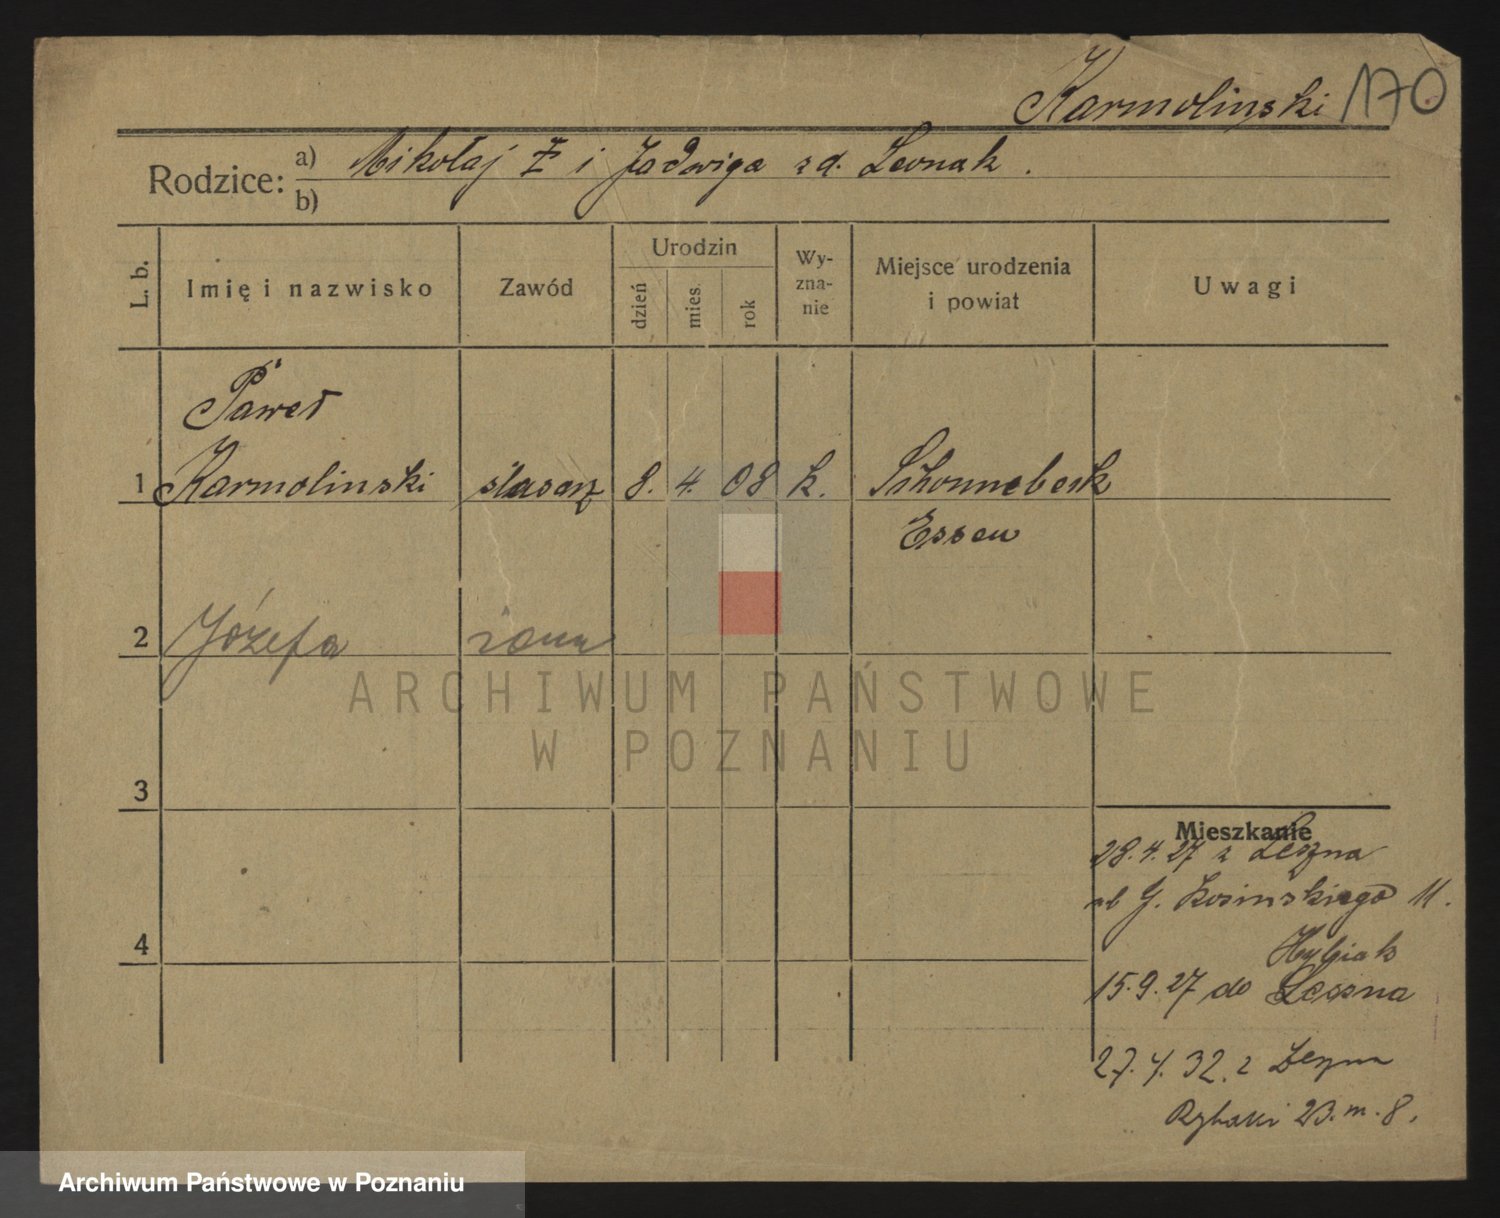 Karmolinski 170
Rodzice: a) Mikołaj Ƶ i Jadwiga zd. Leonak.
b)
L. b. Imię i nazwisko Zawód Urodzin dzień mies. rok Wy-zna-nie Miejsce urodzenia i powiat Uwagi
Paweł
1 Karmolinski ślusarz 8. 4. 08 k. Schonnebeck
Essen
2 Józefa żona
ARCHIWUM PAŃSTWOWE
W POZNANIU
3
Mieszkanie
28.4.27 z Leszna
G. Kosińskiego 11.
4
Hybiak
15.9.27 do Leszna
27.4.32. z Leszna
Rybaki 23. m. 8.
Archiwum Państwowe w Poznaniu